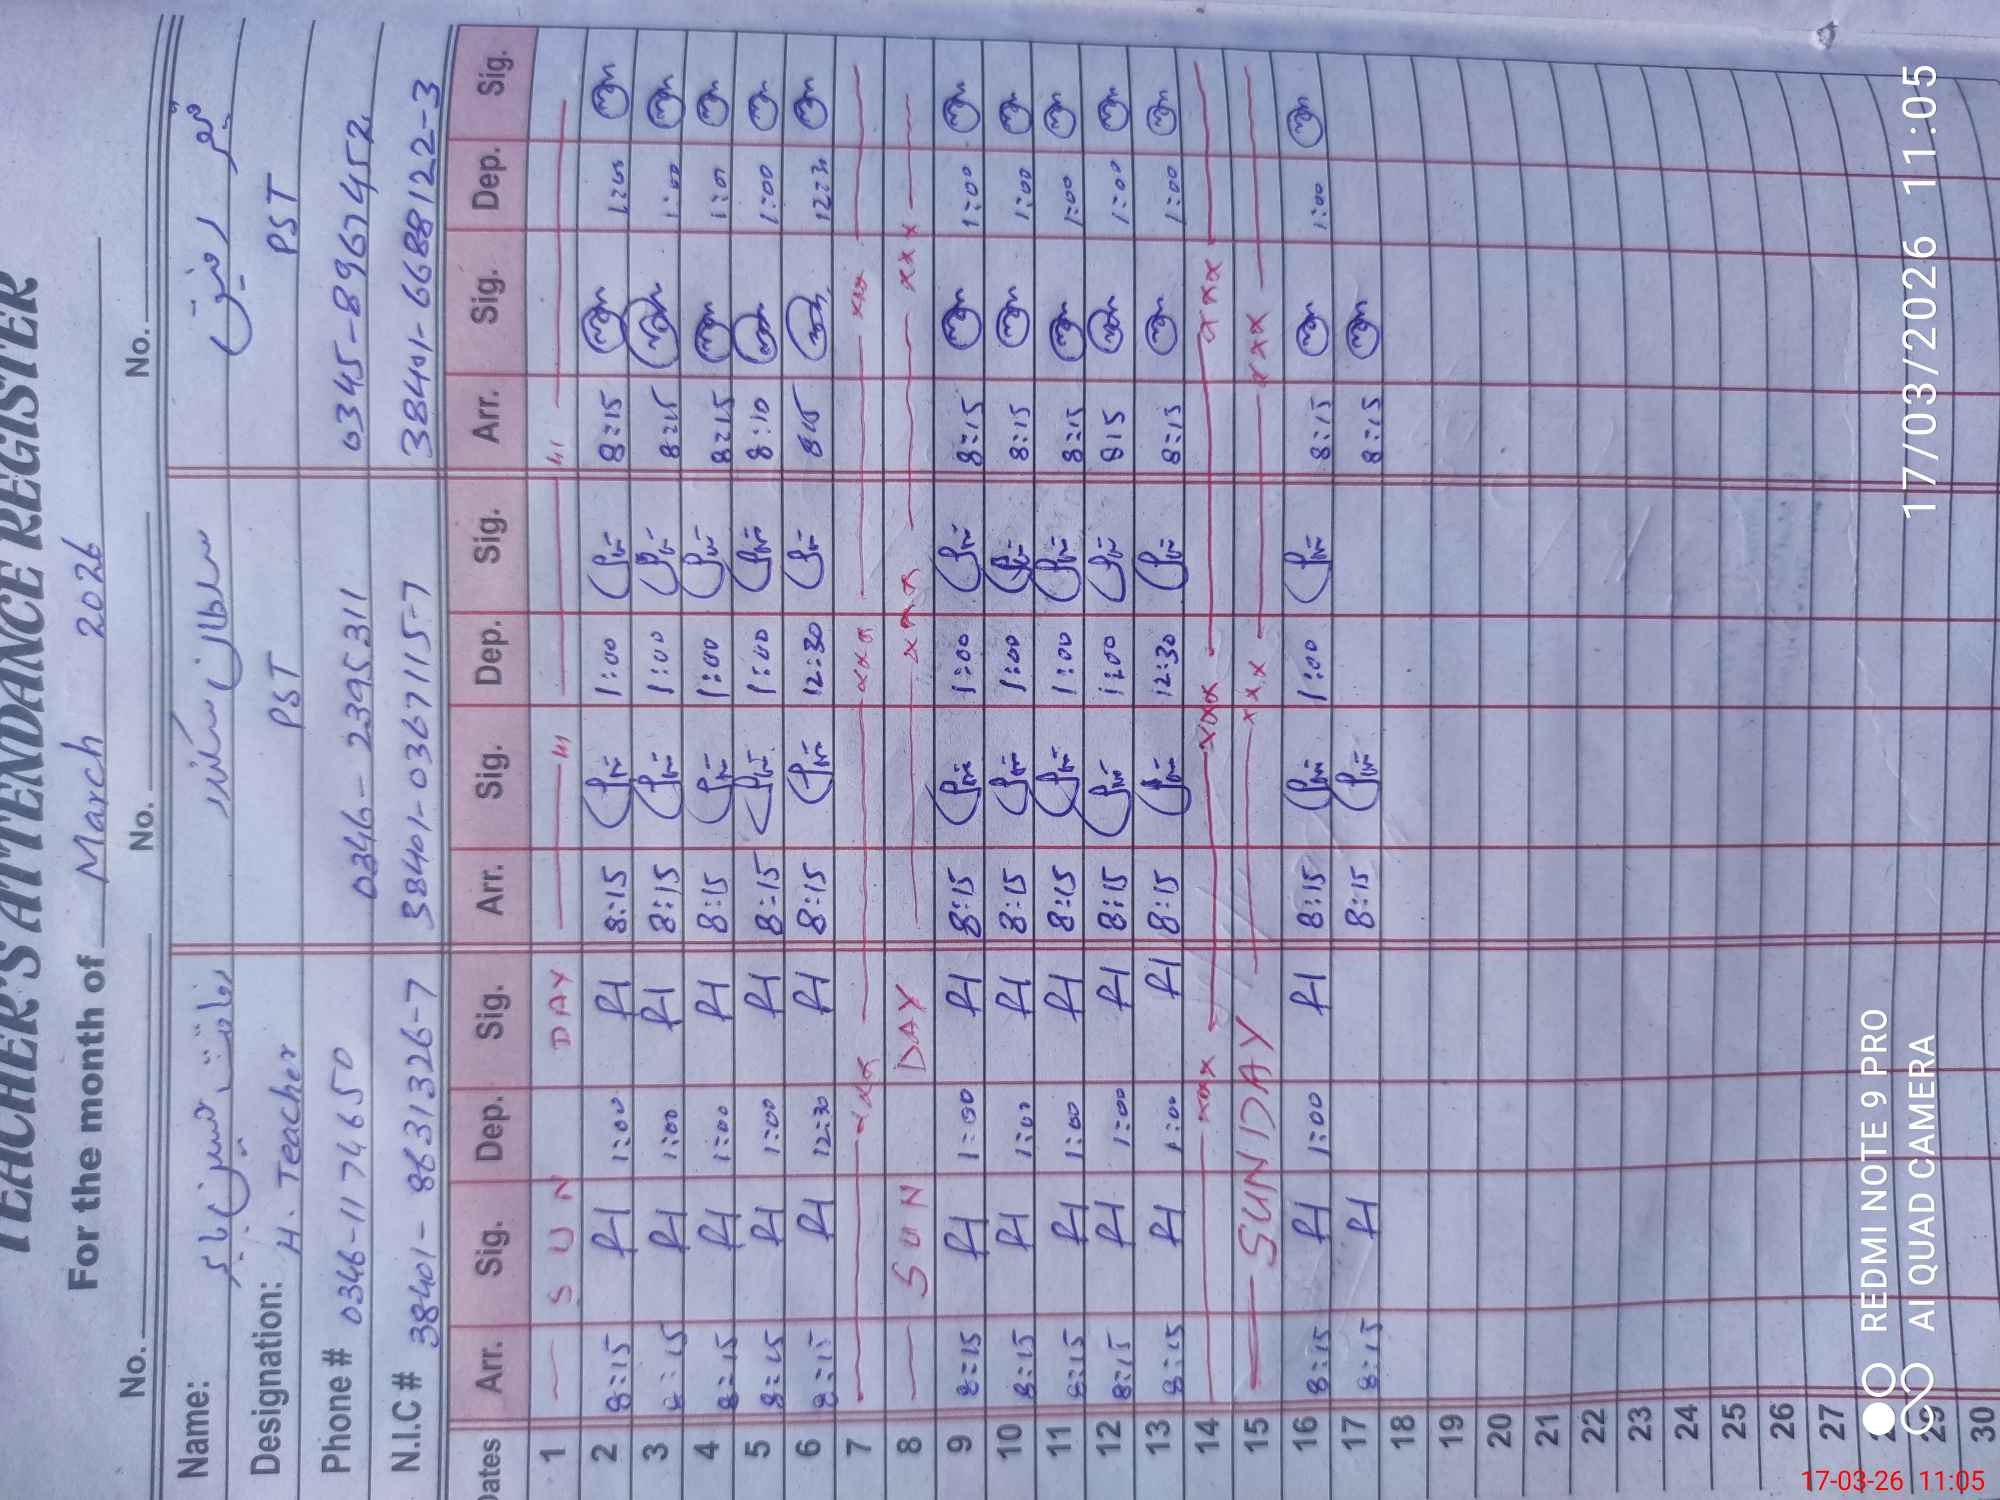 TEACHER'S ATTENDANCE REGISTER
For the month of March 2026
No. No. No.
Name: سلطان سکندر
Designation: H. Teacher PST PST
Phone # 0346-1174650 0346-2395311 0345-8967452
N.I.C # 38401-8631326-7 38401-0367115-7 38401-6688122-3
Dates Arr. Sig. Dep. Sig. Arr. Sig. Dep. Sig. Arr. Sig. Dep. Sig.
1 SUN DAY
2 8:15 1:00 8:15 1:00 8:15 1:00
3 8:15 1:00 8:15 1:00 8:15 1:00
4 8:15 1:00 8:15 1:00 8:15 1:01
5 8:15 1:00 8:15 1:00 8:10 1:00
6 8:15 12:30 8:15 12:30 8:15 12:30
7 xxx xxx xxx
8 SUN DAY xxx xxx
9 8:15 1:00 8:15 1:00 8:15 1:00
10 8:15 1:00 8:15 1:00 8:15 1:00
11 8:15 1:00 8:15 1:00 8:15 1:00
12 8:15 1:00 8:15 1:00 815 1:00
13 8:15 1:00 8:15 12:30 8:15 1:00
14 xxx xxx xxx
15 SUNDAY xxx xxx
16 8:15 1:00 8:15 1:00 8:15 1:00
17 8:15 8:15 8:15
18
19
20
21
22
23
24
25
26
27
29
30
REDMI NOTE 9 PRO
AI QUAD CAMERA
17/03/2026 11:05
17-03-26 11:05